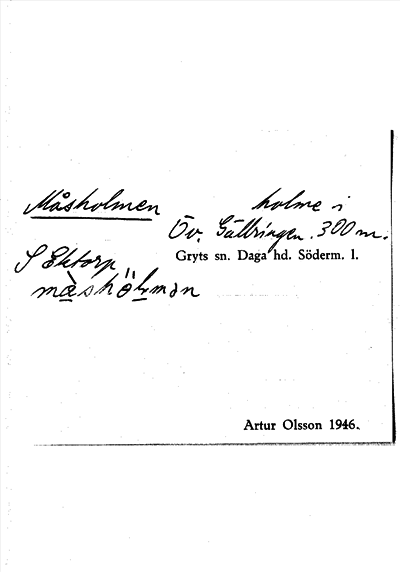 Måsholmen holme i
Öv. Gällringen. 300 m.
S Ektorp Gryts sn. Daga hd. Söderm. l.
Artur Olsson 1946.